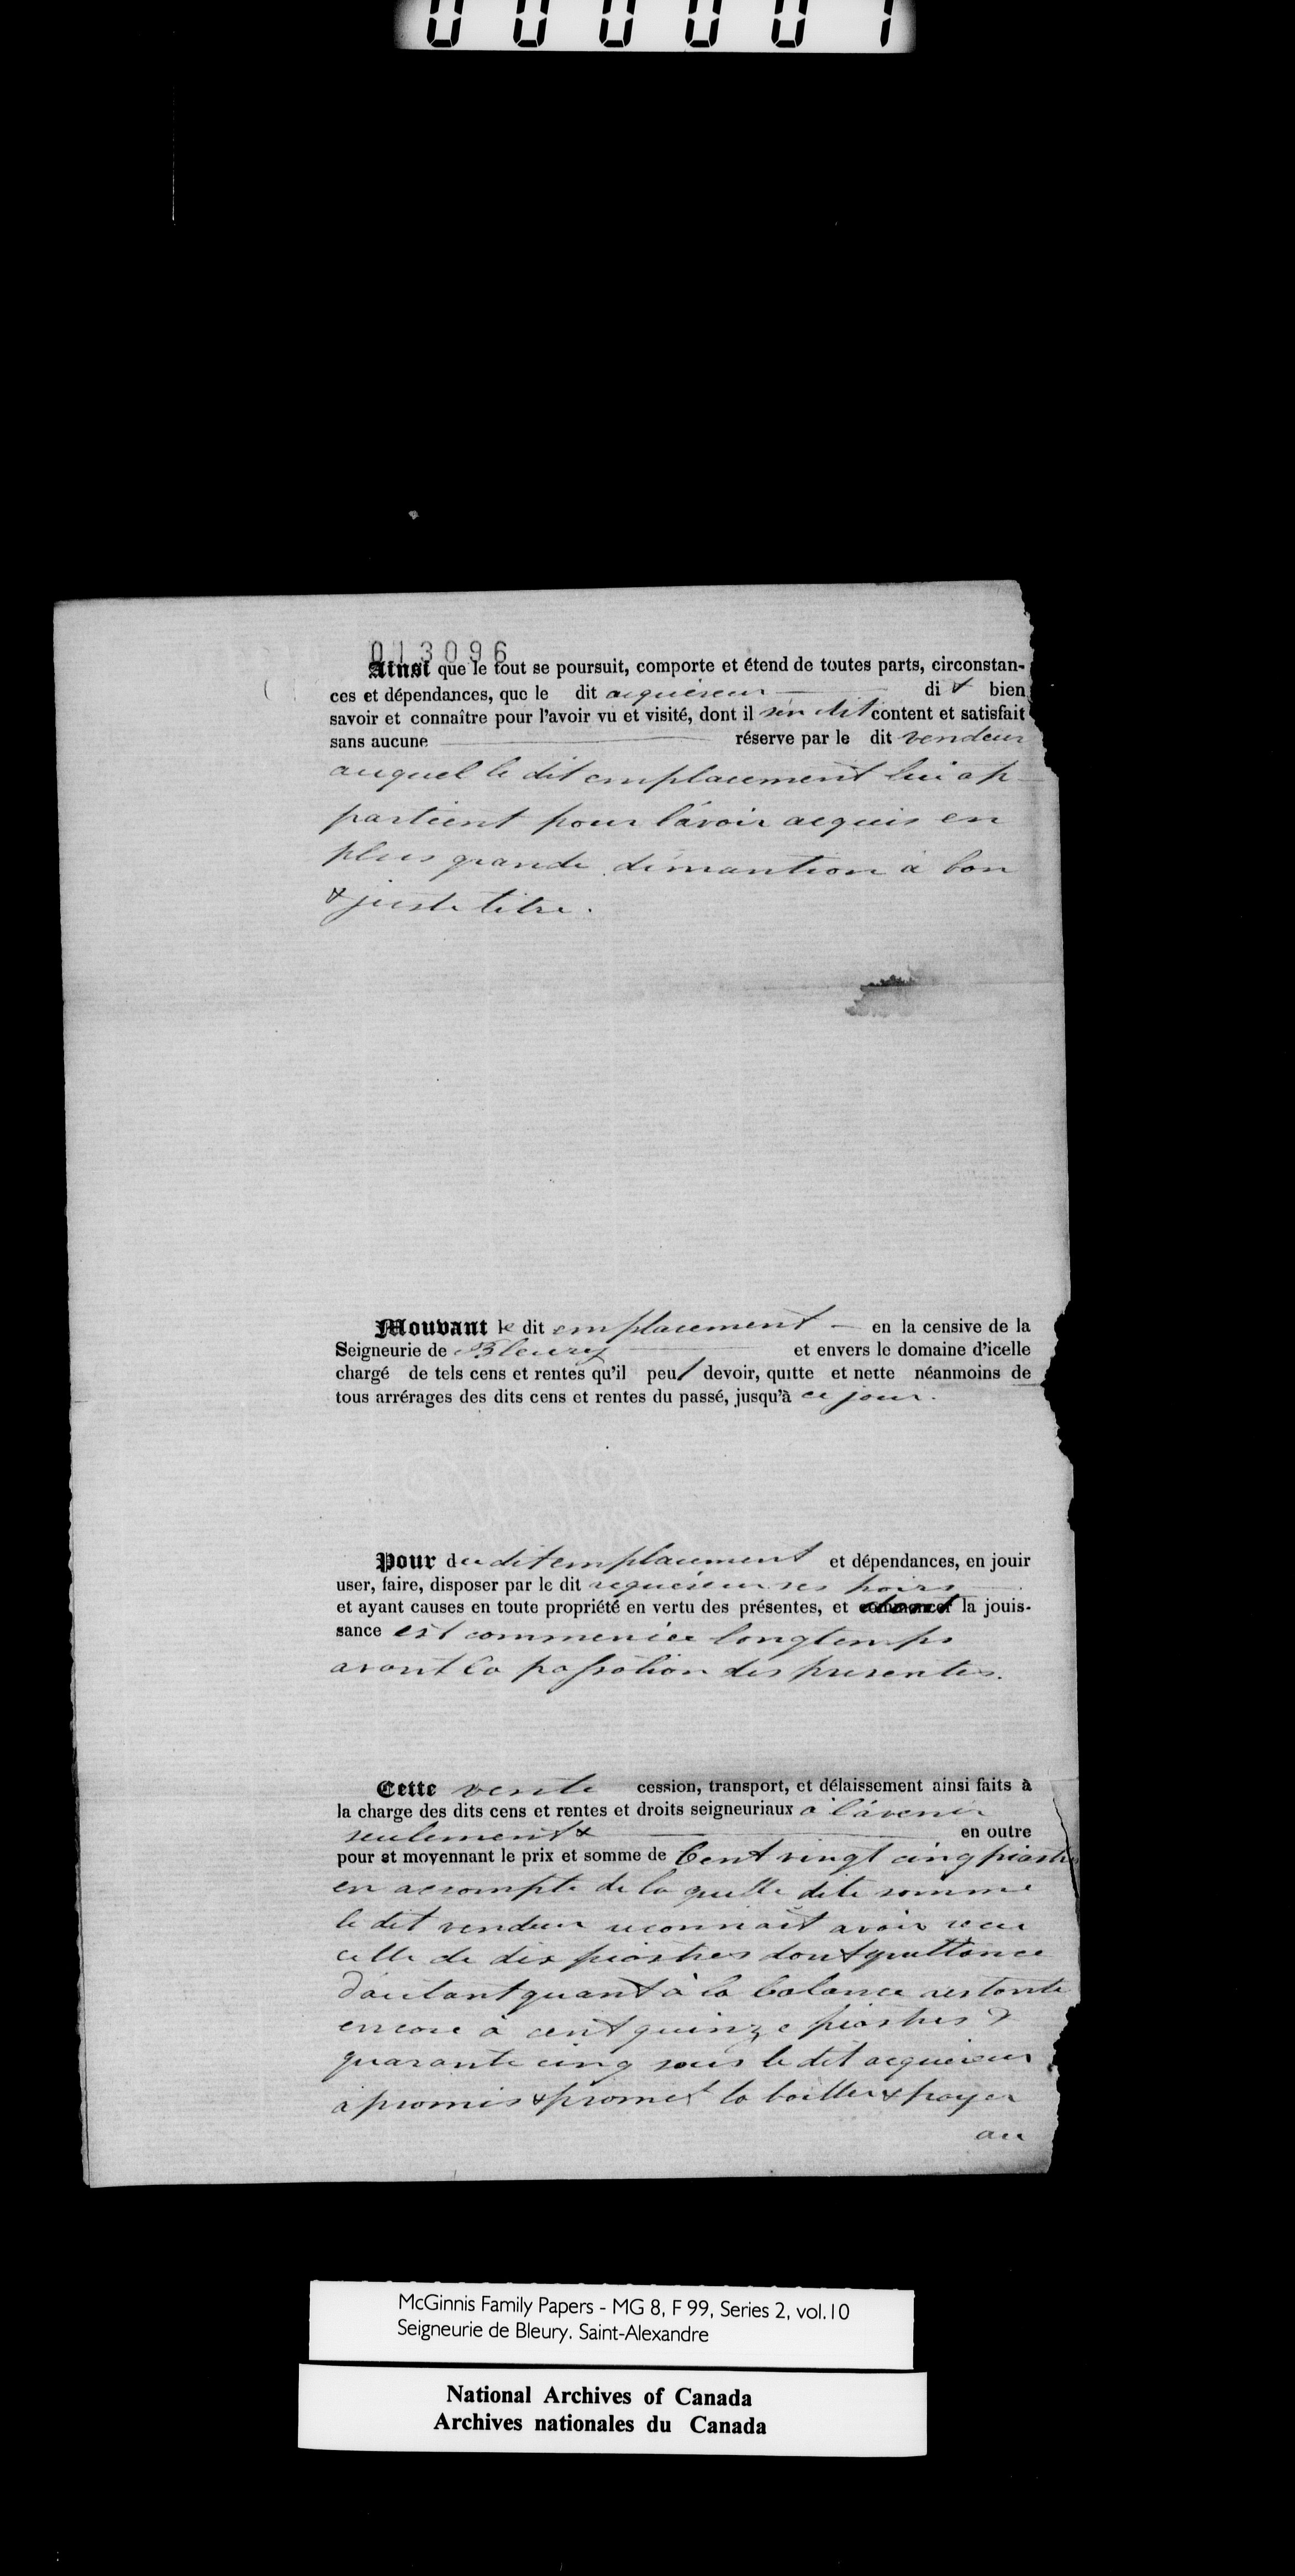 013096
Ainsi que le tout se poursuit, comporte et étend de toutes parts, circonstan-
ces et dépendances, que le dit acquéreur — dit bien
savoir et connaître pour l'avoir vu et visité, dont il s'en dit content et satisfait
sans aucune — réserve par le dit vendeur
auquel le dit emplacement lui ap
partient pour l'avoir acquis en
plus grande dimantion à bon
& juste titre.
Mouvant le dit emplacement — en la censive de la
Seigneurie de Bleury — et envers le domaine d'icelle
chargé de tels cens et rentes qu'il peut devoir, quitte et nette néanmoins de
tous arrérages des dits cens et rentes du passé, jusqu'à ce jour.
Pour du dit emplacement et dépendances, en jouir
user, faire, disposer par le dit acquéreur ses hoirs
et ayant causes en toute propriété en vertu des présentes, et la jouis-
sance est commencée longtemps
avant la passation des presentes.
Cette vente cession, transport, et délaissement ainsi faits à
la charge des dits cens et rentes et droits seigneuriaux à l'avenir
seulement & — en outre
pour et moyennant le prix et somme de Cent vingt cinq piastres
en accompte de la quelle dite somme
le dit vendeur reconnait avoir recu
celle de dix piastres dont quittance
d'autant quant à la balance restante
encore à cent quinze piastres &
quarante cinq sous le dit acquereur
a promis & promet la bailler & payer
au
McGinnis Family Papers - MG 8, F 99, Series 2, vol.10
Seigneurie de Bleury. Saint-Alexandre
National Archives of Canada
Archives nationales du Canada